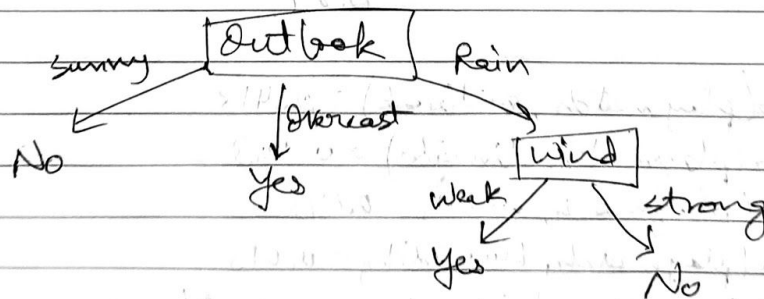 Outlook
sunny Rain
Overcast
No wind
Yes weak strong
Yes No